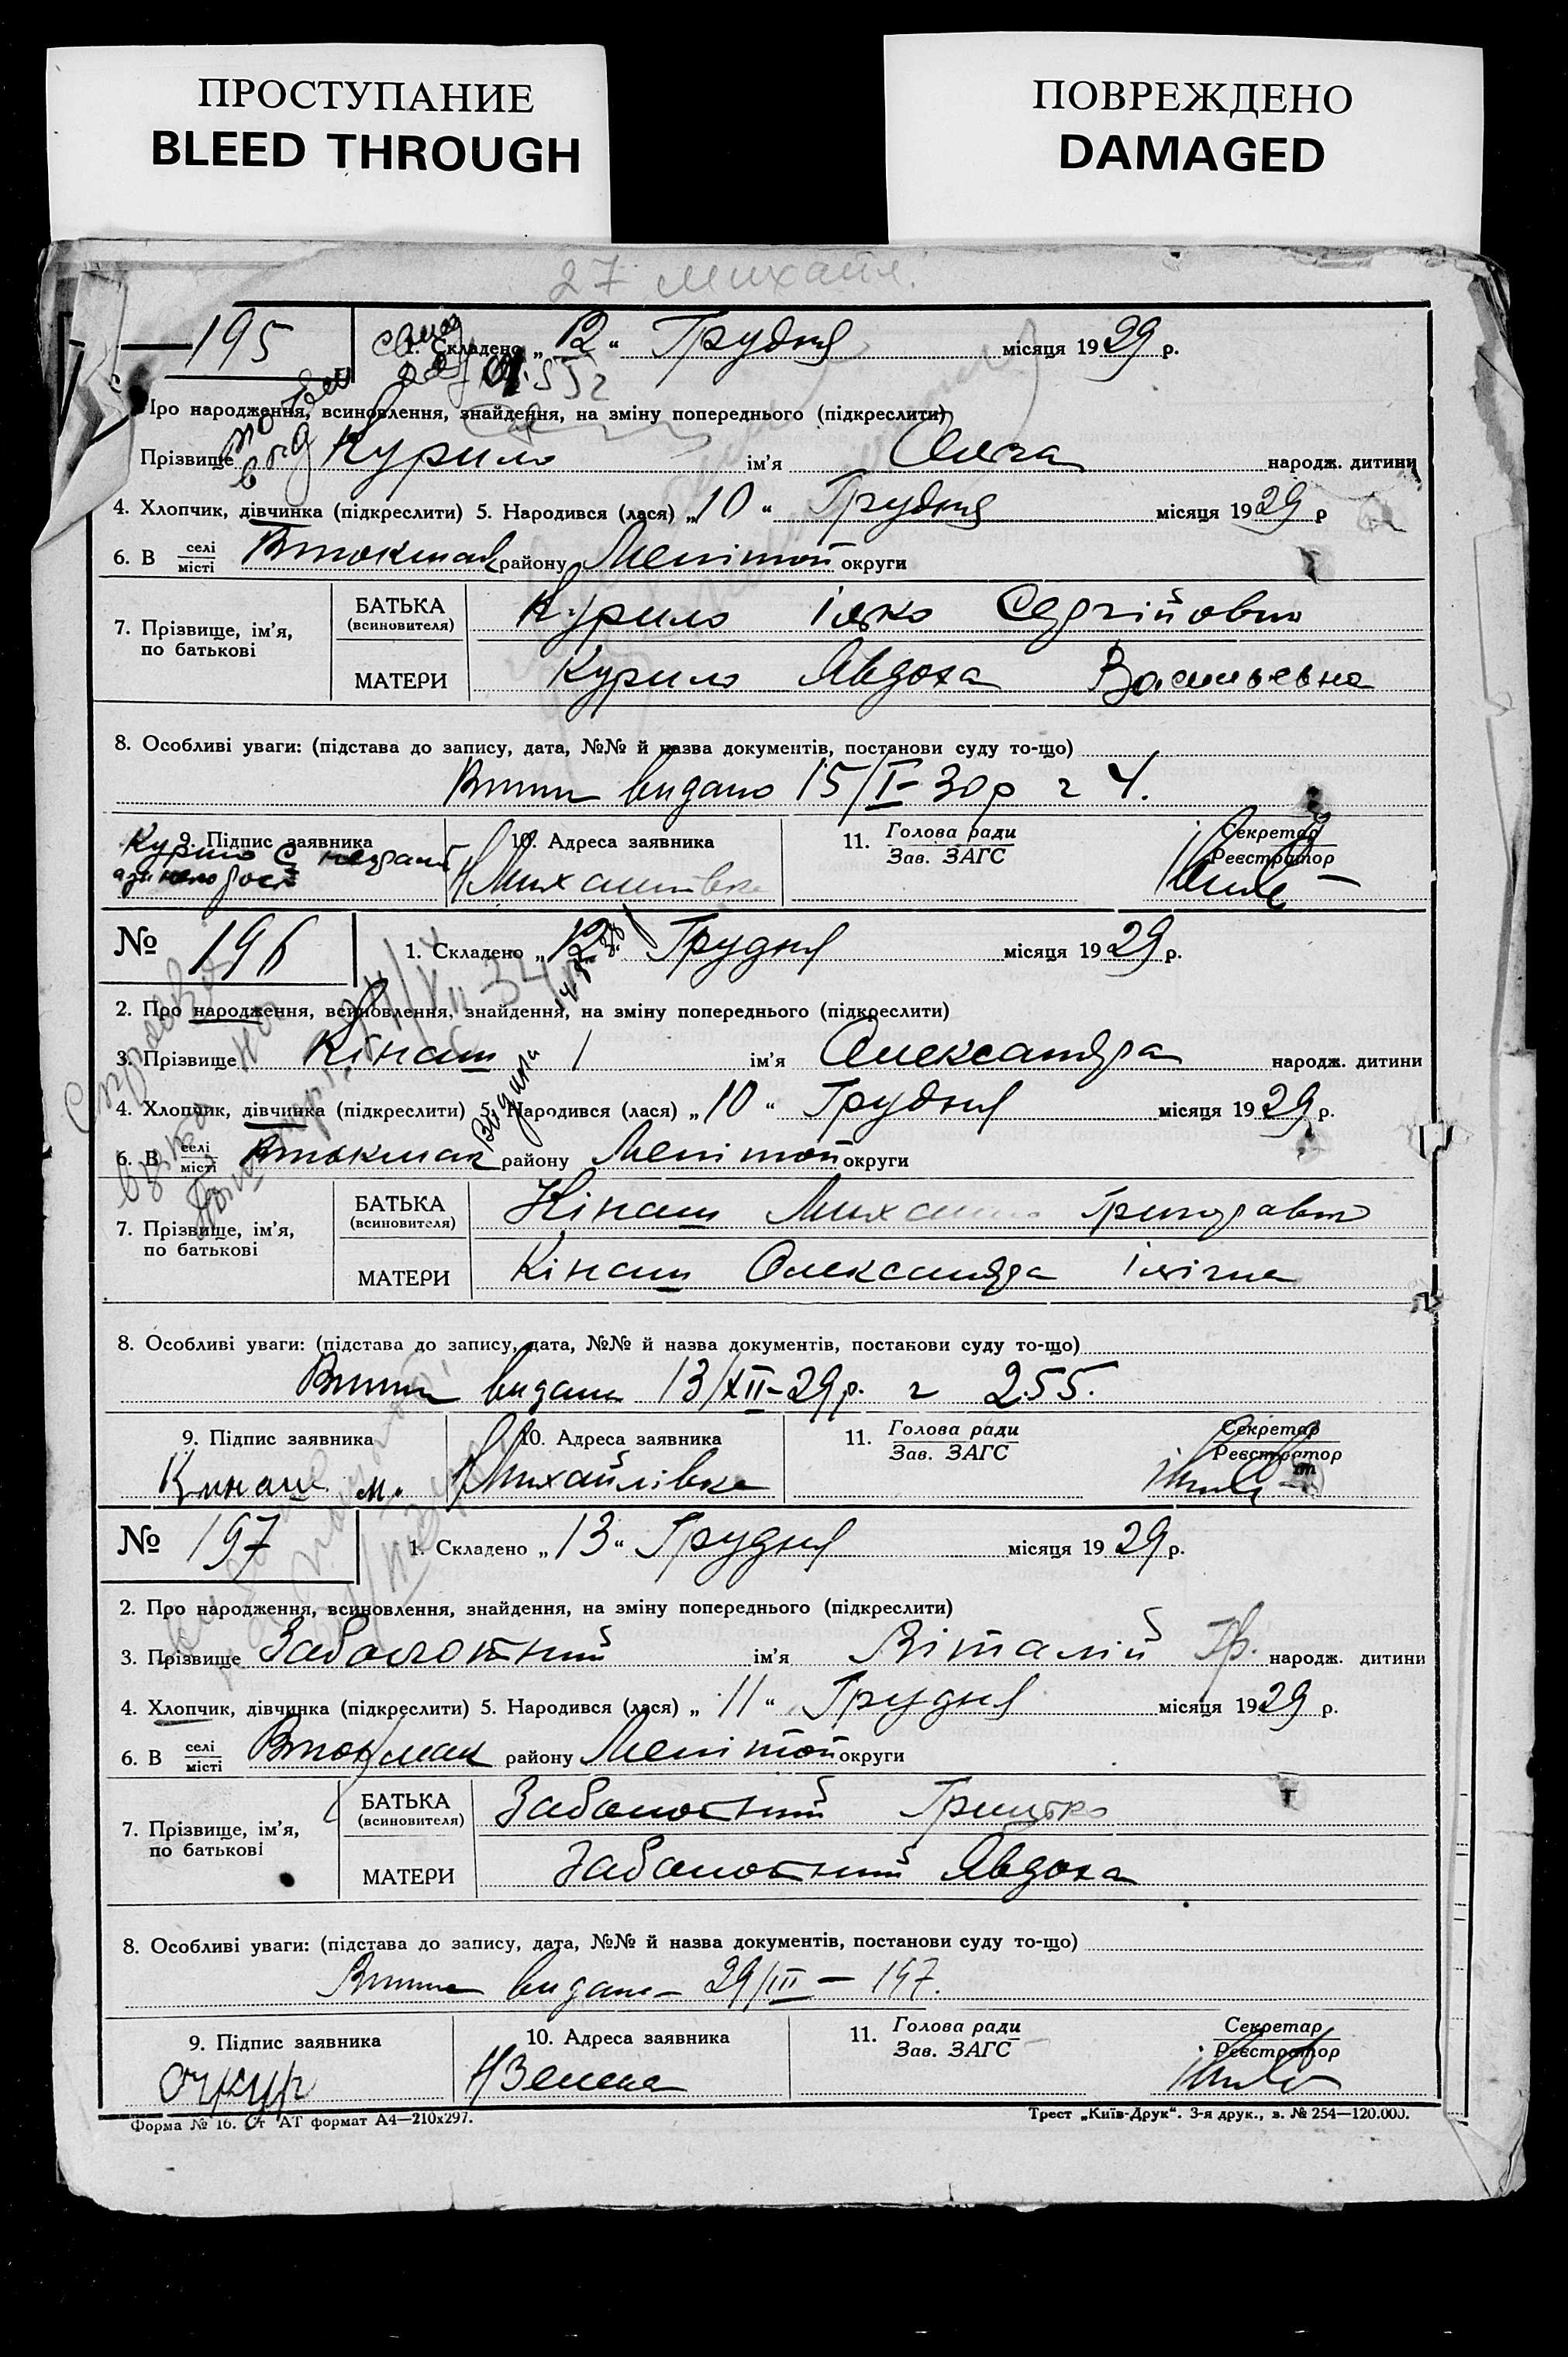 ПРОСТУПАНИЕ
BLEED THROUGH
ПОВРЕЖДЕНО
DAMAGED
27 Михайл.
195
1. Складено „12“ Грудня місяця 1929 р.
Про народження, всиновлення, знайдення, на зміну попереднього (підкреслити)
Прізвище Курило ім'я Ольга народж. дитини
4. Хлопчик, дівчинка (підкреслити) 5. Народився (лася) „10“ Грудня місяця 1929 р
6. В селі/місті Втокмак району Мелітоп округи
7. Прізвище, ім'я, по батькові
БАТЬКА (всиновителя) Курило Ілько Сергійович
МАТЕРИ Курило Явдоха Васильевна
8. Особливі уваги: (підстава до запису, дата, №№ й назва документів, постанови суду то-що)
видано 15/I-30р 4.
9. Підпис заявника
Курило
10. Адреса заявника
Михайлівка
11. Голова ради
Зав. ЗАГС
Секретар
Реєстратор
№ 196
1. Складено „12“ Грудня місяця 1929 р.
2. Про народження, всиновлення, знайдення, на зміну попереднього (підкреслити)
3. Прізвище Кінаш ім'я Олександра народж. дитини
4. Хлопчик, дівчинка (підкреслити) 5. Народився (лася) „10“ Грудня місяця 1929 р.
6. В селі/місті Втокмак району Мелітоп округи
7. Прізвище, ім'я, по батькові
БАТЬКА (всиновителя) Кінаш Михайло Григорович
МАТЕРИ Кінаш Олександра Ілівна
8. Особливі уваги: (підстава до запису, дата, №№ й назва документів, постанови суду то-що)
видано 13/XII-29р. 255.
9. Підпис заявника
Кинаш М.
10. Адреса заявника
Михайлівка
11. Голова ради
Зав. ЗАГС
Секретар
Реєстратор
№ 197
1. Складено „13“ Грудня місяця 1929 р.
2. Про народження, всиновлення, знайдення, на зміну попереднього (підкреслити)
3. Прізвище Заболотний ім'я Віталій Гр. народж. дитини
4. Хлопчик, дівчинка (підкреслити) 5. Народився (лася) „11“ Грудня місяця 1929 р.
6. В селі/місті Втокмак району Мелітоп округи
7. Прізвище, ім'я, по батькові
БАТЬКА (всиновителя) Заболотний Грицько
МАТЕРИ Заболотний Явдоха
8. Особливі уваги: (підстава до запису, дата, №№ й назва документів, постанови суду то-що)
видано 29/III — 147.
9. Підпис заявника
Очкур
10. Адреса заявника
11. Голова ради
Зав. ЗАГС
Секретар
Реєстратор
Форма № 16. Ст АТ формат А4—210х297.
Трест „Київ-Друк“. 3-я друк., з. № 254—120.000.